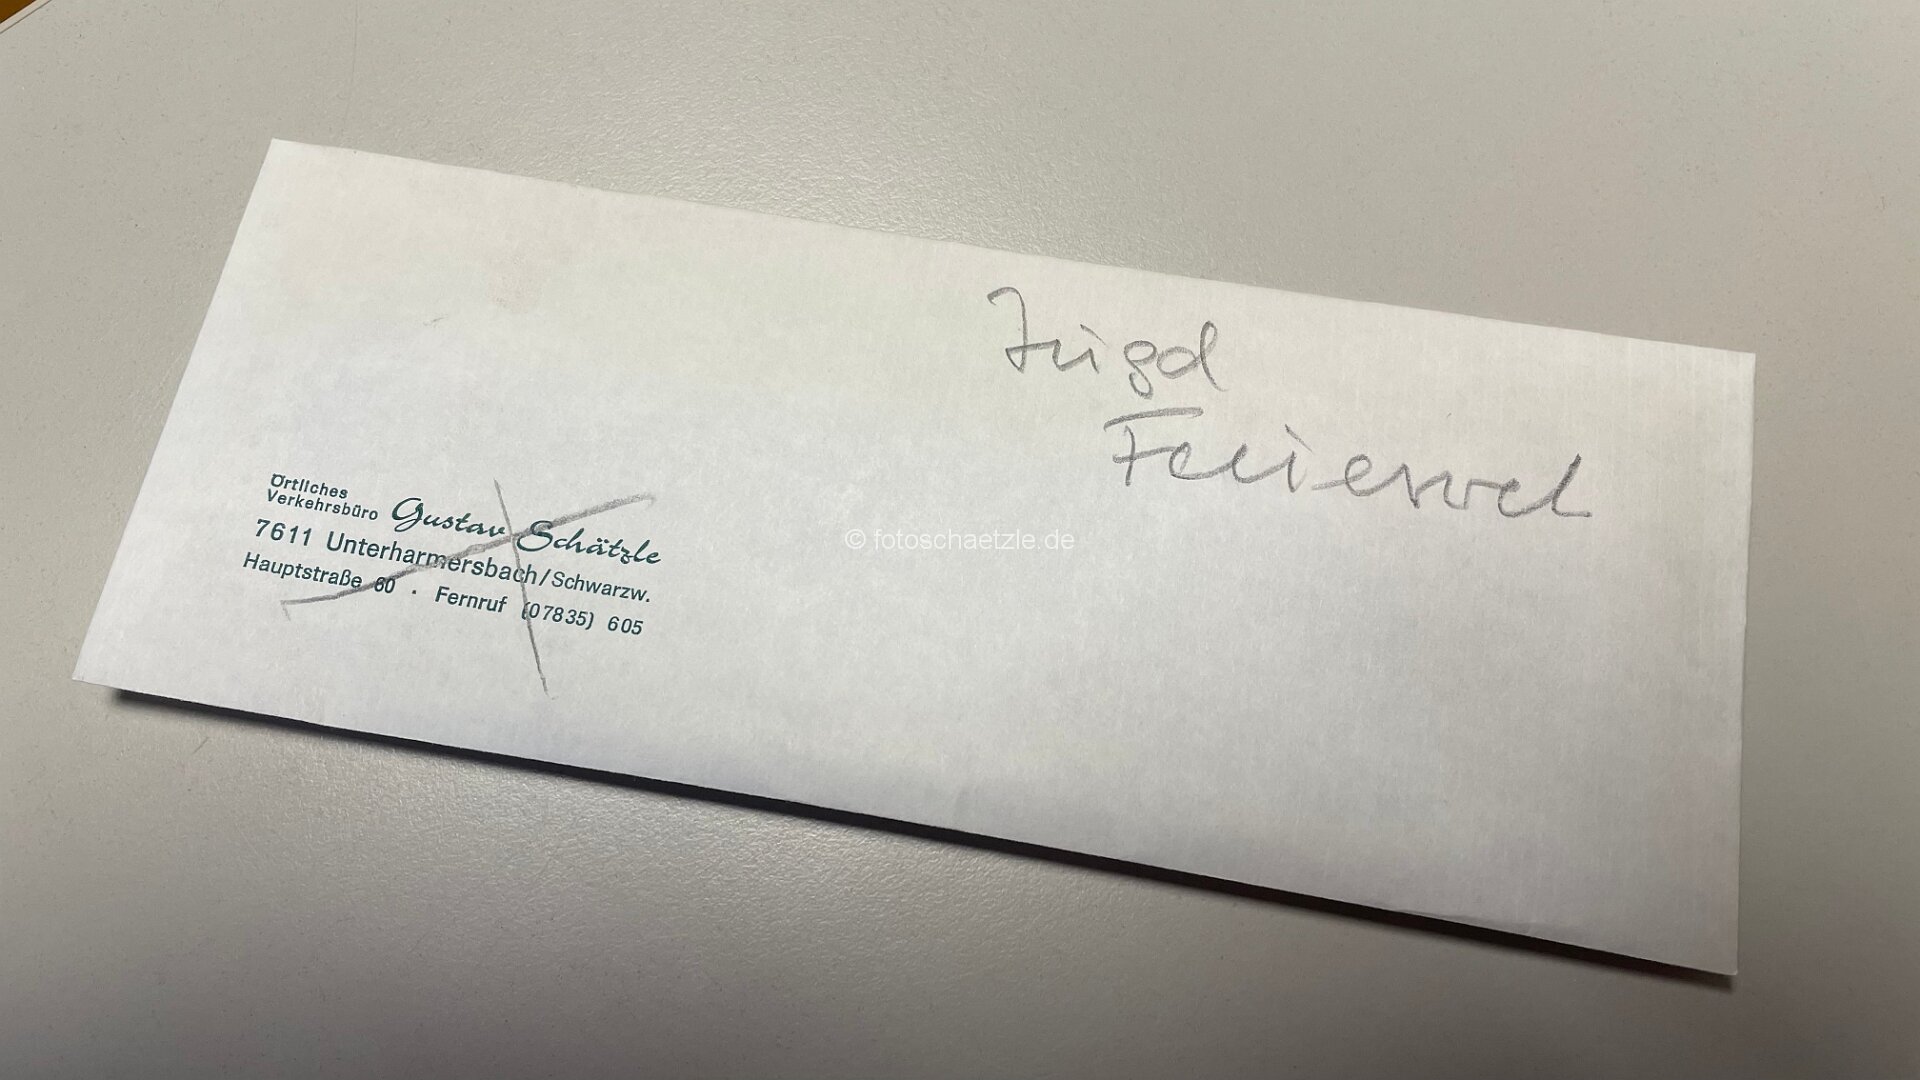 Jugd
Feuerwel
Örtliches
Verkehrsbüro Gustav Schätzle
7611 Unterharmersbach/Schwarzw.
Hauptstraße 60 · Fernruf (07835) 605
© fotoschaetzle.de